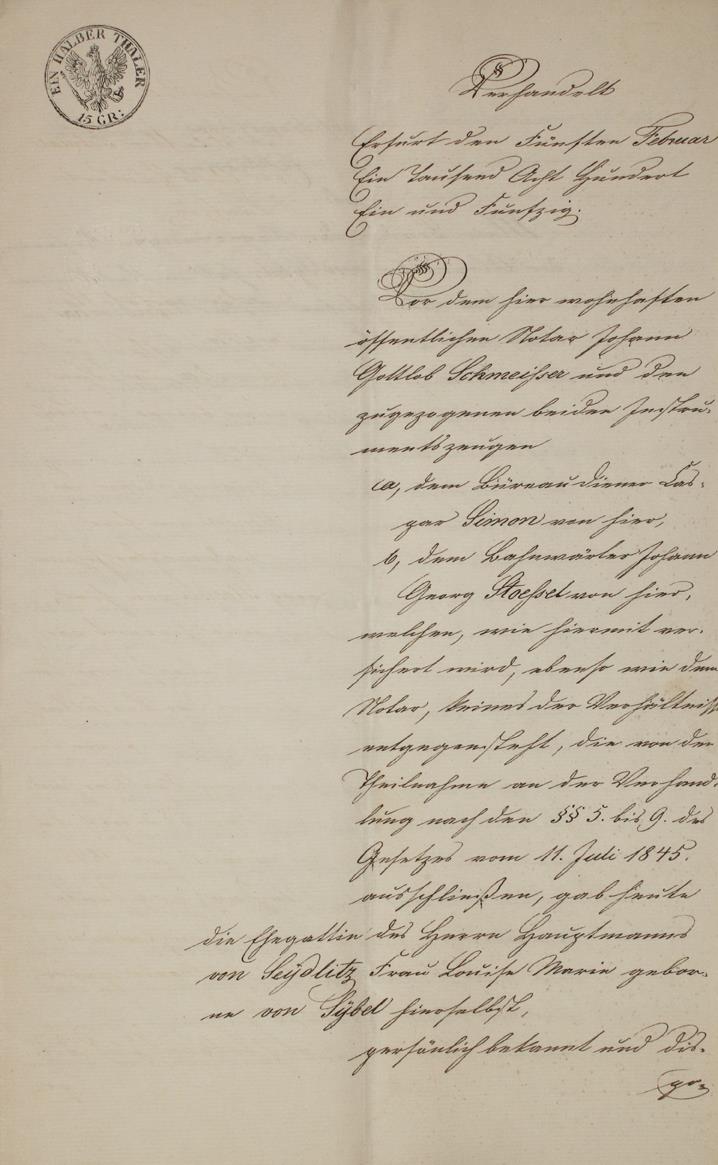 EIN HALBER THALER
15 GR:
Verhandelt
Erfurt den Fünften Februar
Ein Tausend Acht Hundert
Ein und Funfzig.
Vor dem hier wohnhaften
öffentlichen Notar Johann
Gottlob Schmeißer und den
zugezogenen beiden Instru-
mentszeugen
a, dem Büreaudiener Cas-
par Simon von hier,
b, dem Bahnwärter Johann
Georg Stoeßel von hier,
welchen, wie hiermit ver-
sichert wird, ebenso wie dem
Notar, keines der Verhältniss
entgegensteht, die von der
Theilnahme an der Verhand-
lung nach den §§ 5. bis 9. des
Gesetzes vom 11. Juli 1845.
ausschließen, gab heute
die Ehegattin des Herrn Hauptmanns
von Seydlitz Frau Louise Marie gebor-
ne von Sÿbel hierselbst,
persönlich bekannt und dis-
po-